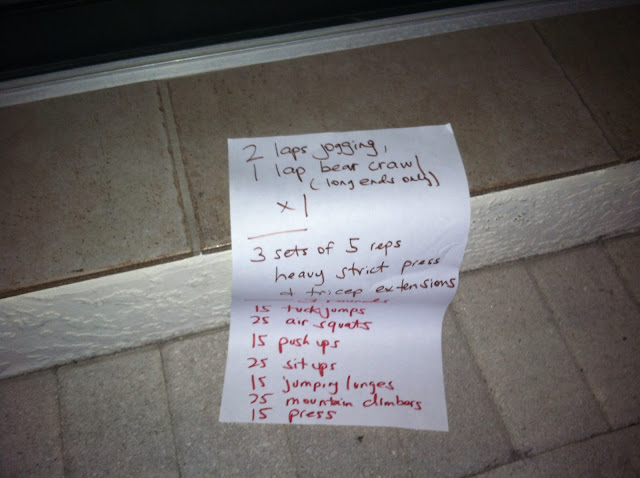 2 laps jogging,
1 lap bear crawl
(long ends only)
x 1
3 sets of 5 reps
heavy strict press
& tricep extensions
15 tuck jumps
25 air squats
15 push ups
25 sit ups
15 jumping lunges
25 mountain climbers
15 press